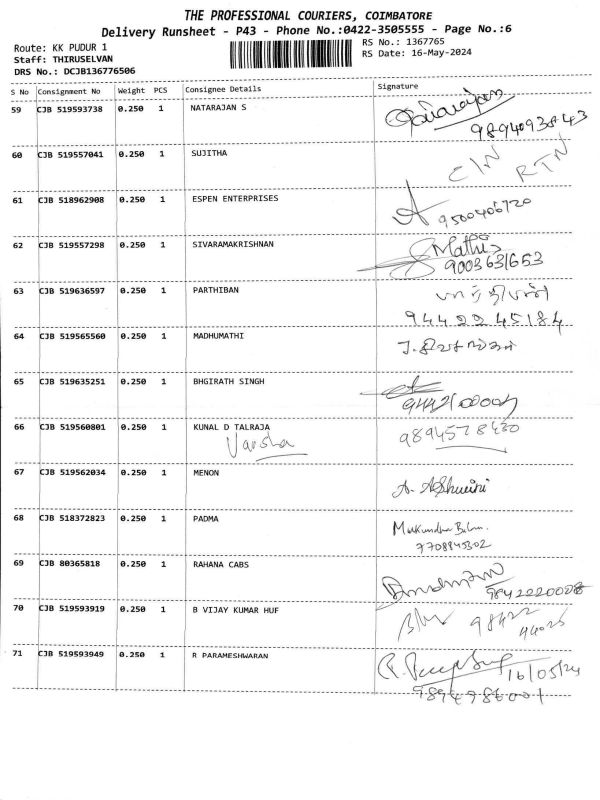 THE PROFESSIONAL COURIERS, COIMBATORE
Delivery Runsheet - P43 - Phone No.:0422-3505555 - Page No.:6
Route: KK PUDUR 1
Staff: THIRUSELVAN
DRS No.: DCJB136776506
RS No.: 1367765
RS Date: 16-May-2024
S No Consignment No Weight PCS Consignee Details Signature
59 CJB 519593738 0.250 1 NATARAJAN S
9894093843
60 CJB 519557041 0.250 1 SUJITHA
RTN
61 CJB 518962908 0.250 1 ESPEN ENTERPRISES
9500406720
62 CJB 519557298 0.250 1 SIVARAMAKRISHNAN Mathi
9003631653
63 CJB 519636597 0.250 1 PARTHIBAN பார்திபன்
9442245184
64 CJB 519565560 0.250 1 MADHUMATHI
65 CJB 519635251 0.250 1 BHGIRATH SINGH
66 CJB 519560801 0.250 1 KUNAL D TALRAJA 9894578430
Varsha
67 CJB 519562034 0.250 1 MENON A. AShwini
68 CJB 518372823 0.250 1 PADMA
7708845302
69 CJB 80365818 0.250 1 RAHANA CABS
9842220008
70 CJB 519593919 0.250 1 B VIJAY KUMAR HUF 98422
44026
71 CJB 519593949 0.250 1 R PARAMESHWARAN
16/05/24
9894986001